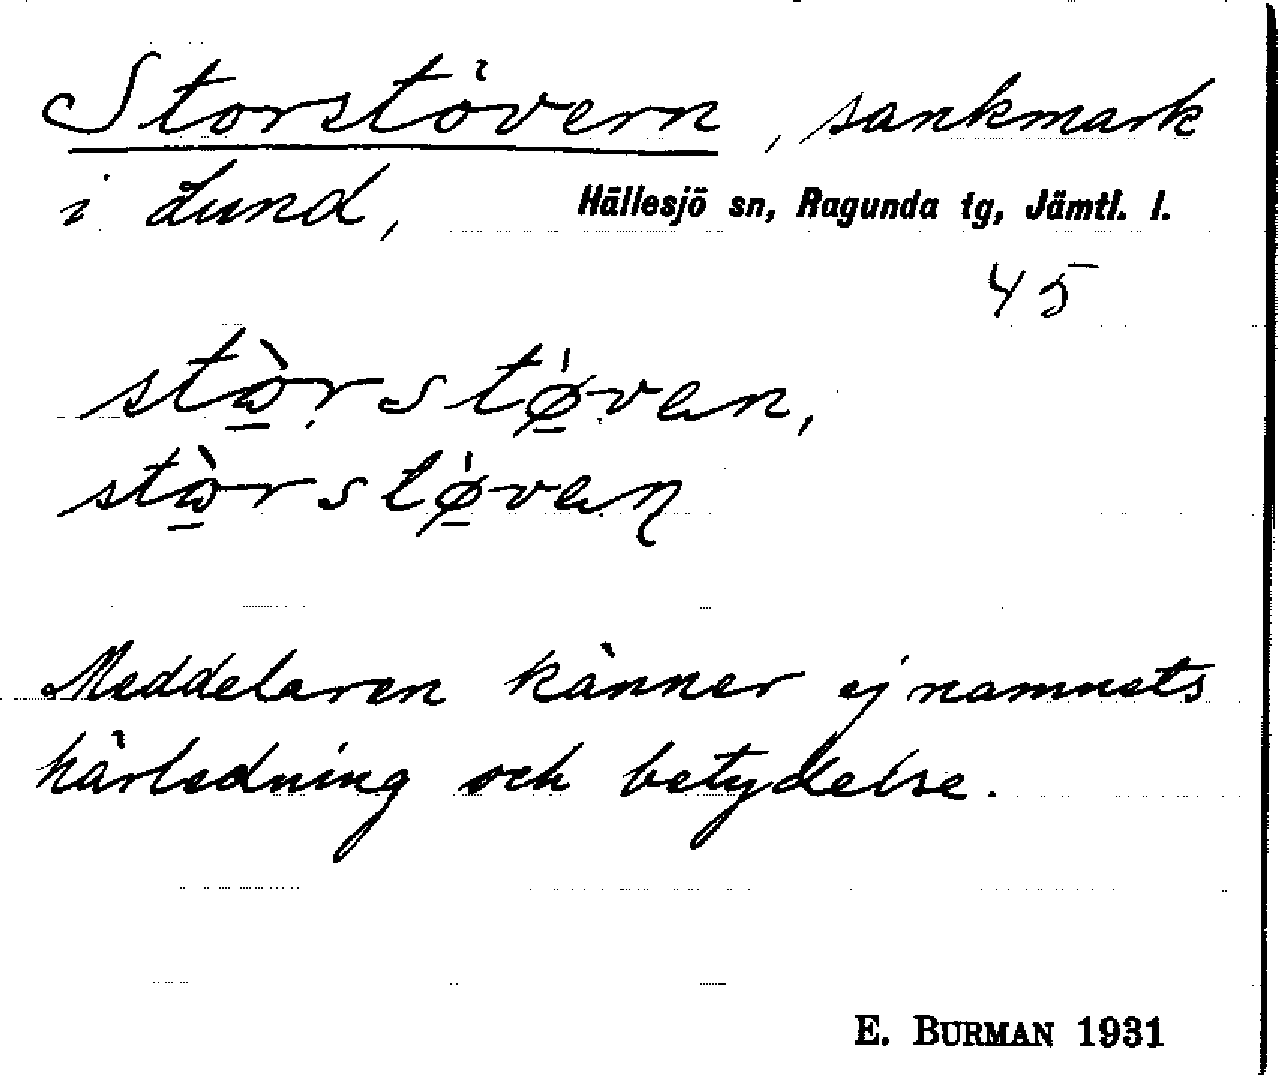 Storstövern, sankmark
i Lund, Hällesjö sn, Ragunda tg, Jämtl. l.
45
stɷ̠̀rstǿ̠van,
stɷ̠̀rstǿ̠vaɳ
Meddelaren känner ej namnets
härledning och betydelse.
E. BURMAN 1931